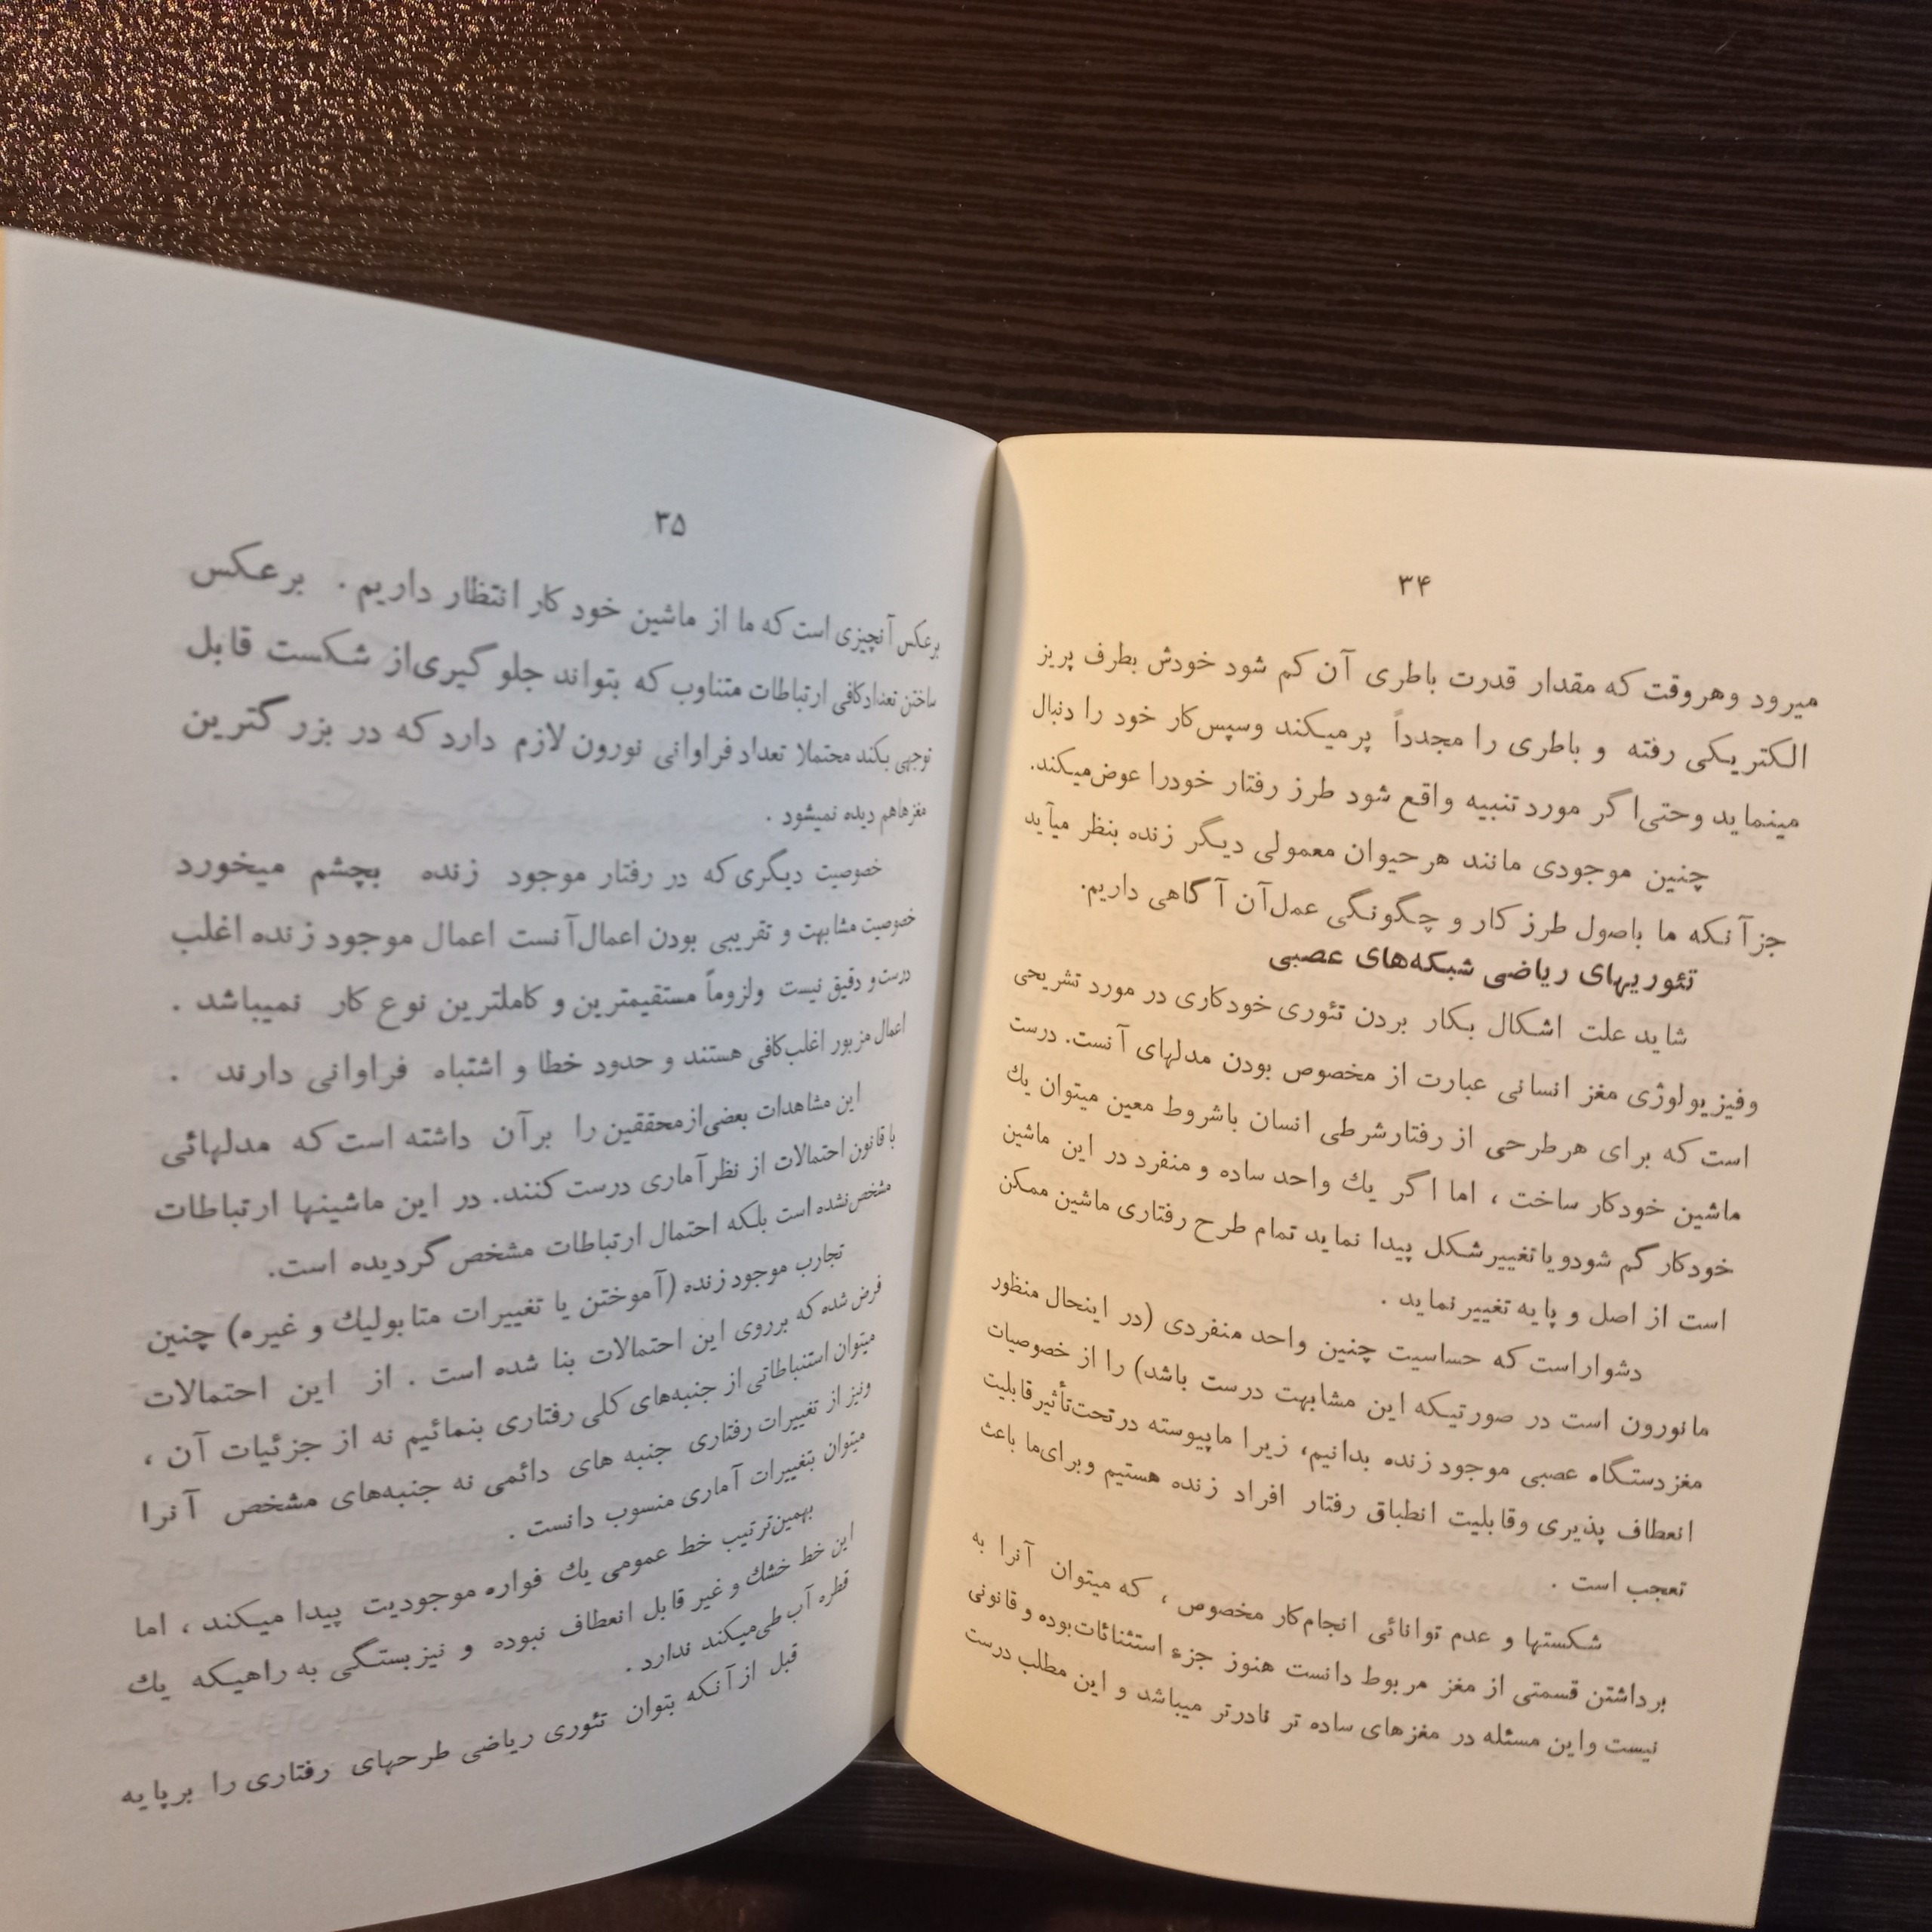 ۳۴
میرود وهروقت که مقدار قدرت باطری آن کم شود خودش بطرف پریز
الکتریکی رفته و باطری را مجدداً پرمیکند وسپس‌کار خود را دنبال
مینماید وحتی‌اگر مورد تنبیه واقع شود طرز رفتار خودرا عوض‌میکند.
چنین موجودی مانند هرحیوان معمولی دیگر زنده بنظر میآید
جزآنکه ما باصول طرز کار و چگونگی عمل‌آن آگاهی داریم.
تئوریهای ریاضی شبکه‌های عصبی
شاید علت اشکال بکار بردن تئوری خودکاری در مورد تشریحی
وفیزیولوژی مغز انسانی عبارت از مخصوص بودن مدلهای آنست. درست
است که برای هرطرحی از رفتارشرطی انسان باشروط معین میتوان یك
ماشین خودکار ساخت ، اما اگر یك واحد ساده و منفرد در این ماشین
خودکار گم شودویاتغییرشکل پیدا نماید تمام طرح رفتاری ماشین ممکن
است از اصل و پایه تغییرنماید .
دشواراست که حساسیت چنین واحد منفردی (در اینحال منظور
مانورون است در صورتیکه این مشابهت درست باشد) را از خصوصیات
مغزدستگاه عصبی موجود زنده بدانیم، زیرا ماپیوسته درتحت‌تأثیرقابلیت
انعطاف پذیری وقابلیت انطباق رفتار افراد زنده هستیم وبرای‌ما باعث
تعجب است .
شکستها و عدم توانائی انجام‌کار مخصوص ، که میتوان آنرا به
برداشتن قسمتی از مغز مربوط دانست هنوز جزء استثنائات‌بوده و قانونی
نیست واین مسئله در مغزهای ساده تر نادرتر میباشد و این مطلب درست
۳۵
برعکس آنچیزی است که ما از ماشین خودکار انتظار داریم . برعکس
ساختن تعدادکافی ارتباطات متناوب که بتواند جلوگیری‌از شکست قابل
توجهی بکند محتملا تعداد فراوانی نورون لازم دارد که در بزرگترین
مغزهاهم دیده نمیشود .
خصوصیت دیگری‌که در رفتار موجود زنده بچشم میخورد
خصوصیت مشابهت و تقریبی بودن اعمال‌آنست اعمال موجود زنده اغلب
درست و دقیق نیست ولزوماً مستقیمترین و کاملترین نوع کار نمیباشد .
اعمال مزبور اغلب‌کافی هستند و حدود خطا و اشتباه فراوانی دارند .
این مشاهدات بعضی‌ازمحققین را برآن داشته است که مدلهائی
باقانون احتمالات از نظرآماری درست کنند. در این ماشینها ارتباطات
مشخص‌نشده است بلکه احتمال ارتباطات مشخص گردیده است.
تجارب موجود زنده (آموختن یا تغییرات متابولیك و غیره) چنین
فرض شده که برروی این احتمالات بنا شده است . از این احتمالات
میتوان استنباطاتی از جنبه‌های کلی رفتاری بنمائیم نه از جزئیات آن ،
ونیز از تغییرات رفتاری جنبه های دائمی نه جنبه‌های مشخص آنرا
میتوان بتغییرات آماری منسوب دانست .
بهمین‌ترتیب خط عمومی یك فواره موجودیت پیدا میکند ، اما
این خط خشك و غیر قابل انعطاف نبوده و نیزبستگی به راهیکه یك
قطره آب طی‌میکند ندارد .
قبل ازآنکه بتوان تئوری ریاضی طرحهای رفتاری را برپایه